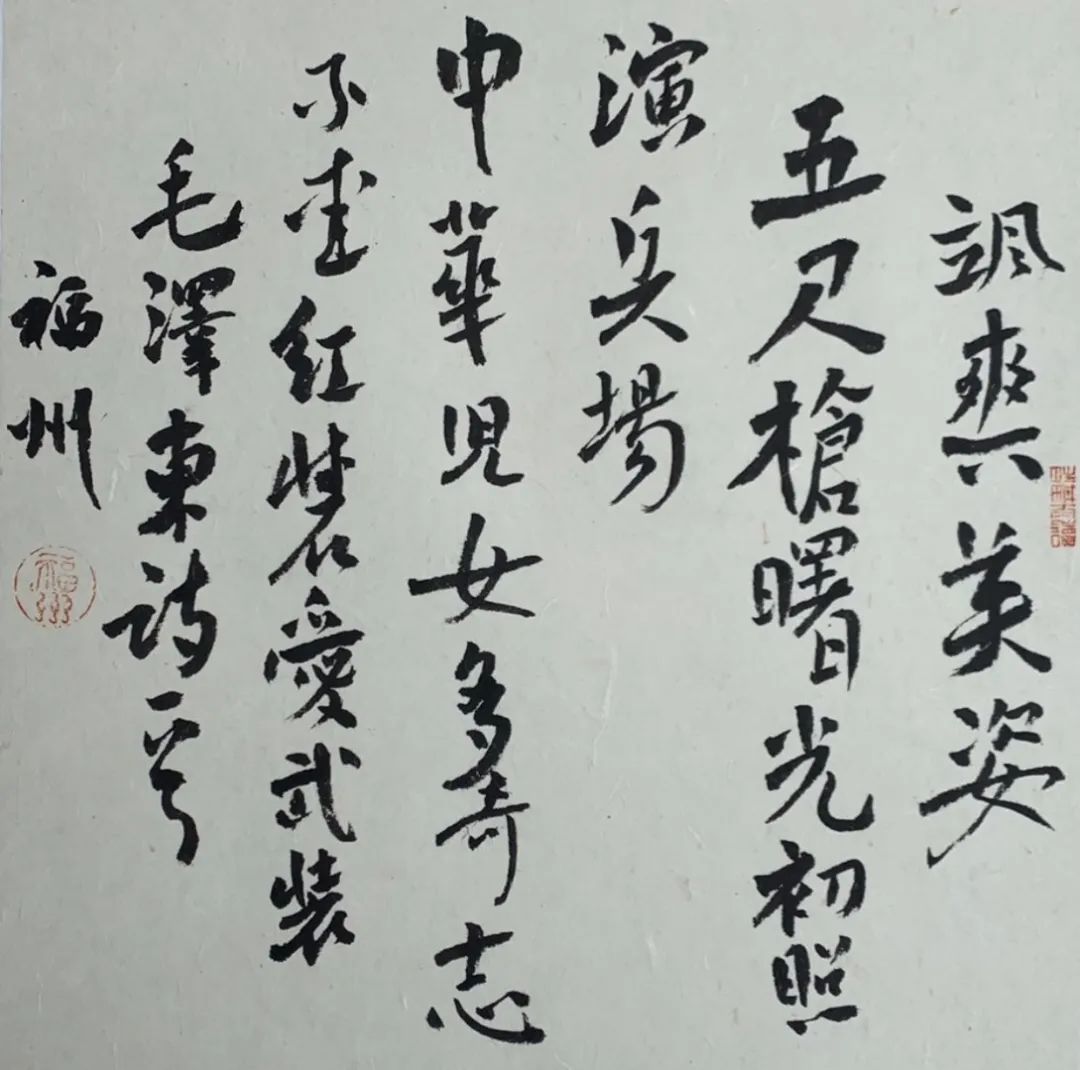 颯爽英姿
五尺槍曙光初照
演兵場
中華兒女多奇志
不愛紅裝愛武裝
毛澤東詩一首
福州
福州